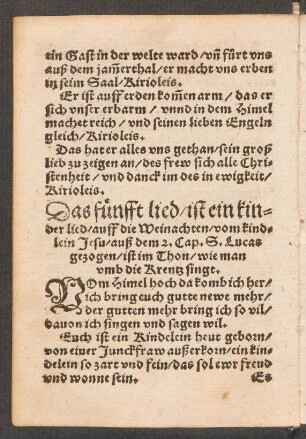 ein Gast in der welte ward/vñ fürt vns
auß dem jam̃erthal/er macht vns erben
in seim Saal/Kirioleis.
Er ist auff erden kom̃en arm/das er
sich vnser erbarm/vnnd in dem Himel
machet reich/vnd seinen lieben Engeln
gleich/Kirioleis.
Das hat er alles vns gethan/sein groß
lieb zu zeigen an/des frew sich alle Chri-
stenheit/vnd danck im des in ewigkeit/
Kirioleis.
Das fünfft lied/ist ein kin-
der lied/auff die Weinachten/vom kind-
lein Jesu/auß dem 2. Cap. S. Lucas
gezogen/ist im Thon/wie man
vmb die Krentz singt.
VOm Himel hoch da komb ich her/
ich bring euch gutte newe mehr/
der gutten mehr bring ich so vil/
dauon ich singen vnd sagen wil.
Euch ist ein Kindelein heut geborn/
von einer Junckfraw außerkorn/ein kin-
delein so zart vnd fein/das sol ewr freud
vnd wonne sein.
Es